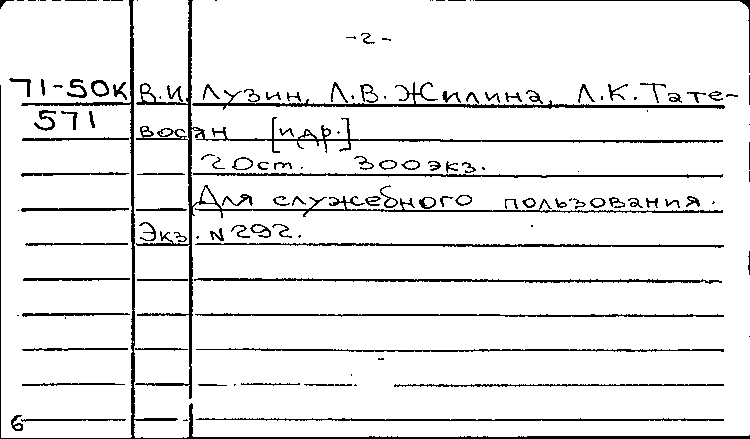 -2-
71-50к В.И. Лузин, Л.В. Жилина, Л.К. Тате-
571 восян [и др.]
20 ст. 300 экз.
Для служебного пользования.
Экз. № 292.
6